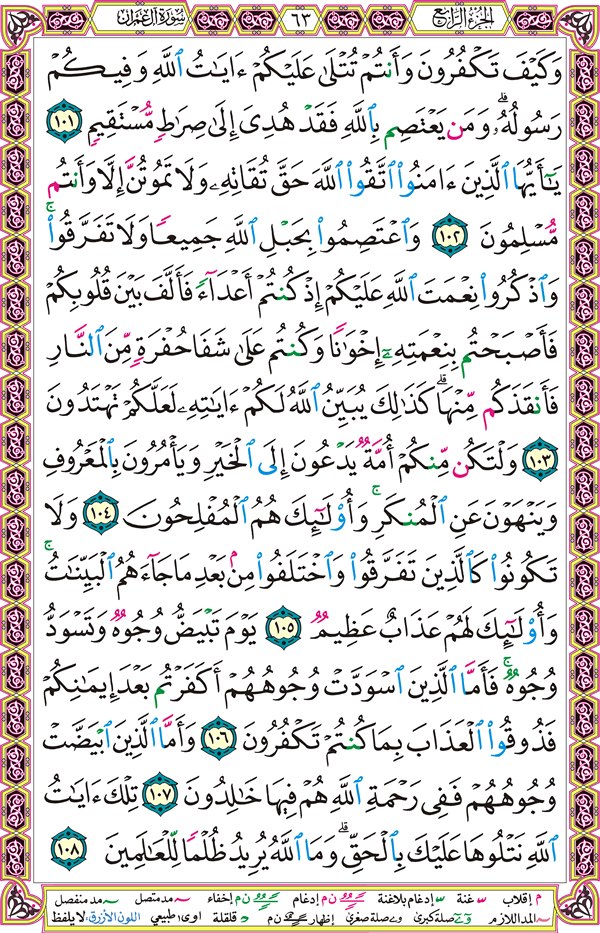 الجزء الرابع
٦٣
سورة آل عمران
وَكَيْفَ تَكْفُرُونَ وَأَنتُمْ تُتْلَىٰ عَلَيْكُمْ ءَايَـٰتُ ٱللَّهِ وَفِيكُمْ
رَسُولُهُۥ ۗ وَمَن يَعْتَصِم بِٱللَّهِ فَقَدْ هُدِىَ إِلَىٰ صِرَٰطٍ مُّسْتَقِيمٍ ١٠١
يَـٰٓأَيُّهَا ٱلَّذِينَ ءَامَنُوا۟ ٱتَّقُوا۟ ٱللَّهَ حَقَّ تُقَاتِهِۦ وَلَا تَمُوتُنَّ إِلَّا وَأَنتُم
مُّسْلِمُونَ ١٠٢ وَٱعْتَصِمُوا۟ بِحَبْلِ ٱللَّهِ جَمِيعًا وَلَا تَفَرَّقُوا۟ ۚ
وَٱذْكُرُوا۟ نِعْمَتَ ٱللَّهِ عَلَيْكُمْ إِذْ كُنتُمْ أَعْدَآءً فَأَلَّفَ بَيْنَ قُلُوبِكُمْ
فَأَصْبَحْتُم بِنِعْمَتِهِۦٓ إِخْوَٰنًا وَكُنتُمْ عَلَىٰ شَفَا حُفْرَةٍ مِّنَ ٱلنَّارِ
فَأَنقَذَكُم مِّنْهَا ۗ كَذَٰلِكَ يُبَيِّنُ ٱللَّهُ لَكُمْ ءَايَـٰتِهِۦ لَعَلَّكُمْ تَهْتَدُونَ
١٠٣ وَلْتَكُن مِّنكُمْ أُمَّةٌ يَدْعُونَ إِلَى ٱلْخَيْرِ وَيَأْمُرُونَ بِٱلْمَعْرُوفِ
وَيَنْهَوْنَ عَنِ ٱلْمُنكَرِ ۚ وَأُو۟لَـٰٓئِكَ هُمُ ٱلْمُفْلِحُونَ ١٠٤ وَلَا
تَكُونُوا۟ كَٱلَّذِينَ تَفَرَّقُوا۟ وَٱخْتَلَفُوا۟ مِنۢ بَعْدِ مَا جَآءَهُمُ ٱلْبَيِّنَـٰتُ ۚ
وَأُو۟لَـٰٓئِكَ لَهُمْ عَذَابٌ عَظِيمٌ ١٠٥ يَوْمَ تَبْيَضُّ وُجُوهٌ وَتَسْوَدُّ
وُجُوهٌ ۚ فَأَمَّا ٱلَّذِينَ ٱسْوَدَّتْ وُجُوهُهُمْ أَكَفَرْتُم بَعْدَ إِيمَـٰنِكُمْ
فَذُوقُوا۟ ٱلْعَذَابَ بِمَا كُنتُمْ تَكْفُرُونَ ١٠٦ وَأَمَّا ٱلَّذِينَ ٱبْيَضَّتْ
وُجُوهُهُمْ فَفِى رَحْمَةِ ٱللَّهِ هُمْ فِيهَا خَـٰلِدُونَ ١٠٧ تِلْكَ ءَايَـٰتُ
ٱللَّهِ نَتْلُوهَا عَلَيْكَ بِٱلْحَقِّ ۗ وَمَا ٱللَّهُ يُرِيدُ ظُلْمًا لِّلْعَـٰلَمِينَ ١٠٨
م إقلاب غنة إدغام بلاغنة ن م إدغام ن م إخفاء مد متصل مد منفصل
المد اللازم صلة كبرى صلة صغرى إظهار ن م قلقلة اوى: طبيعي اللون الأزرق: لا يلفظ